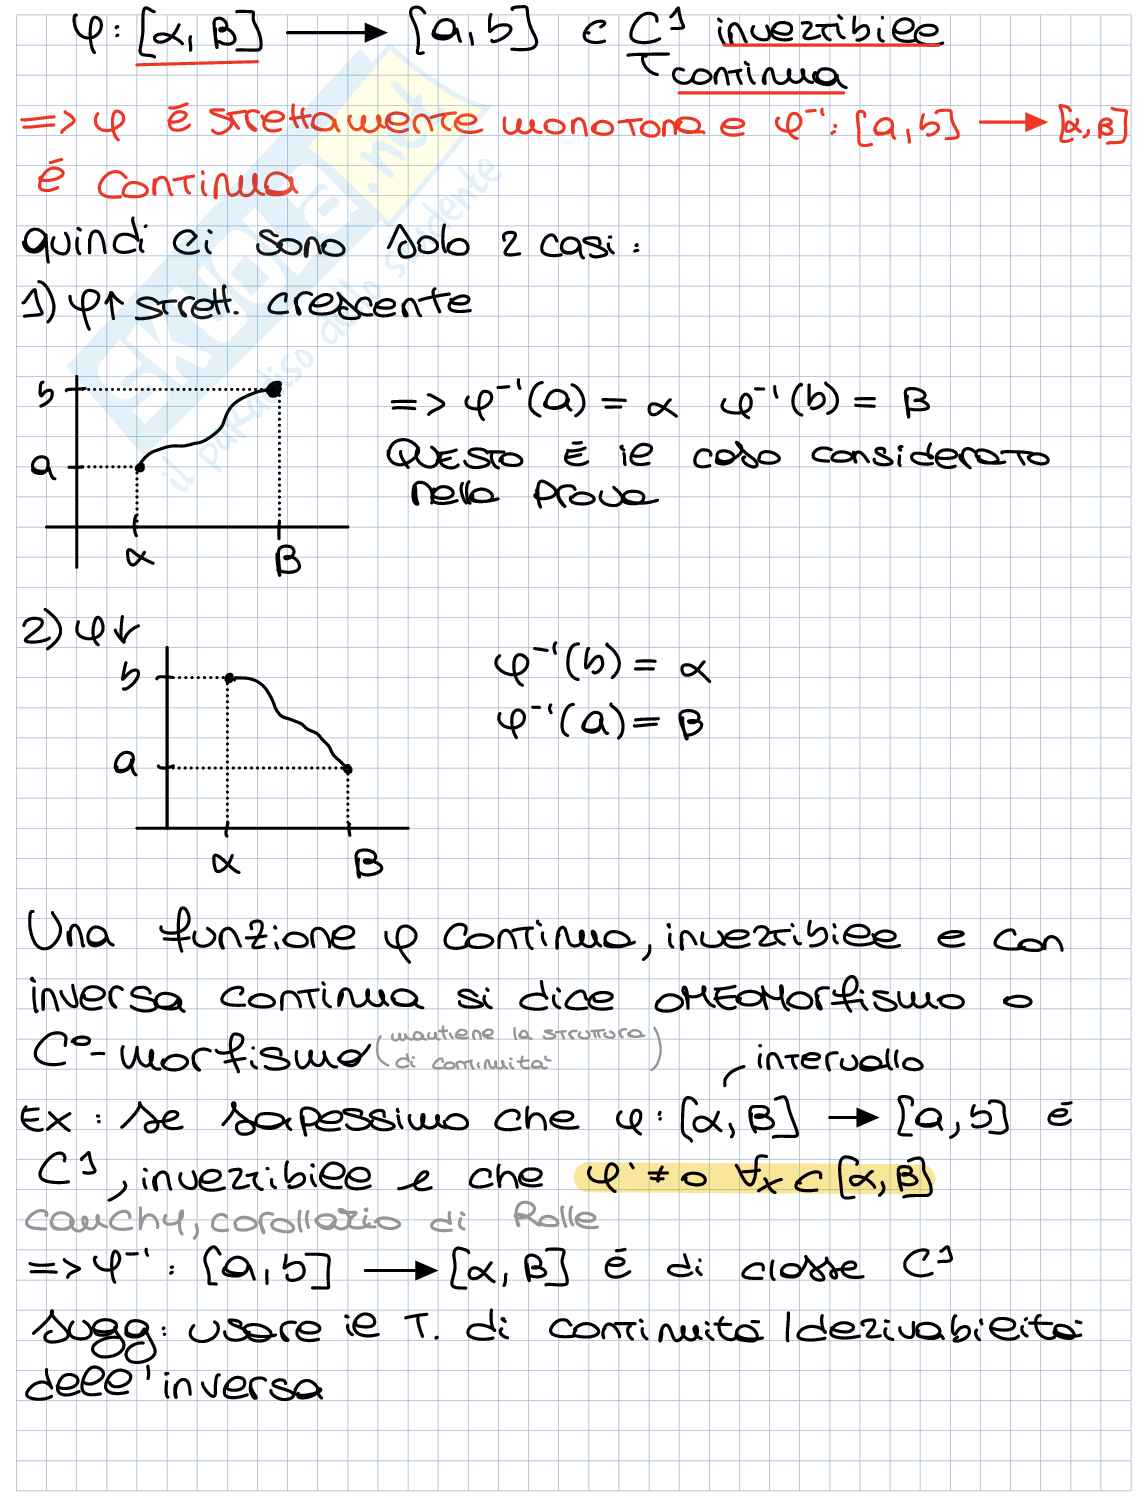 φ: [α, β] ⟶ [a, b] è C¹ invertibile
continua
=> φ è strettamente monotona e φ⁻¹: [a, b] ⟶ [α, β]
è continua
quindi ci sono solo 2 casi:
1) φ↑ strett. crescente
b
a
α
β
=> φ⁻¹(a) = α φ⁻¹(b) = β
QUESTO È il caso considerato
nella prova
2) φ↓
b
a
α
β
φ⁻¹(b) = α
φ⁻¹(a) = β
Una funzione φ continua, invertibile e con
inversa continua si dice OMEOMorfismo o
C⁰-morfismo (mantiene la struttura
di continuità)
intervallo
Ex: se sapessimo che φ: [α, β] ⟶ [a, b] è
C¹, invertibile e che φ' ≠ 0 ∀x ⊂ [α, β]
Cauchy, corollario di Rolle
=> φ⁻¹: [a, b] ⟶ [α, β] è di classe C¹
sugg: usare il T. di continuità/derivabilità
dell'inversa
SKUOLA.net
il paradiso dello studente